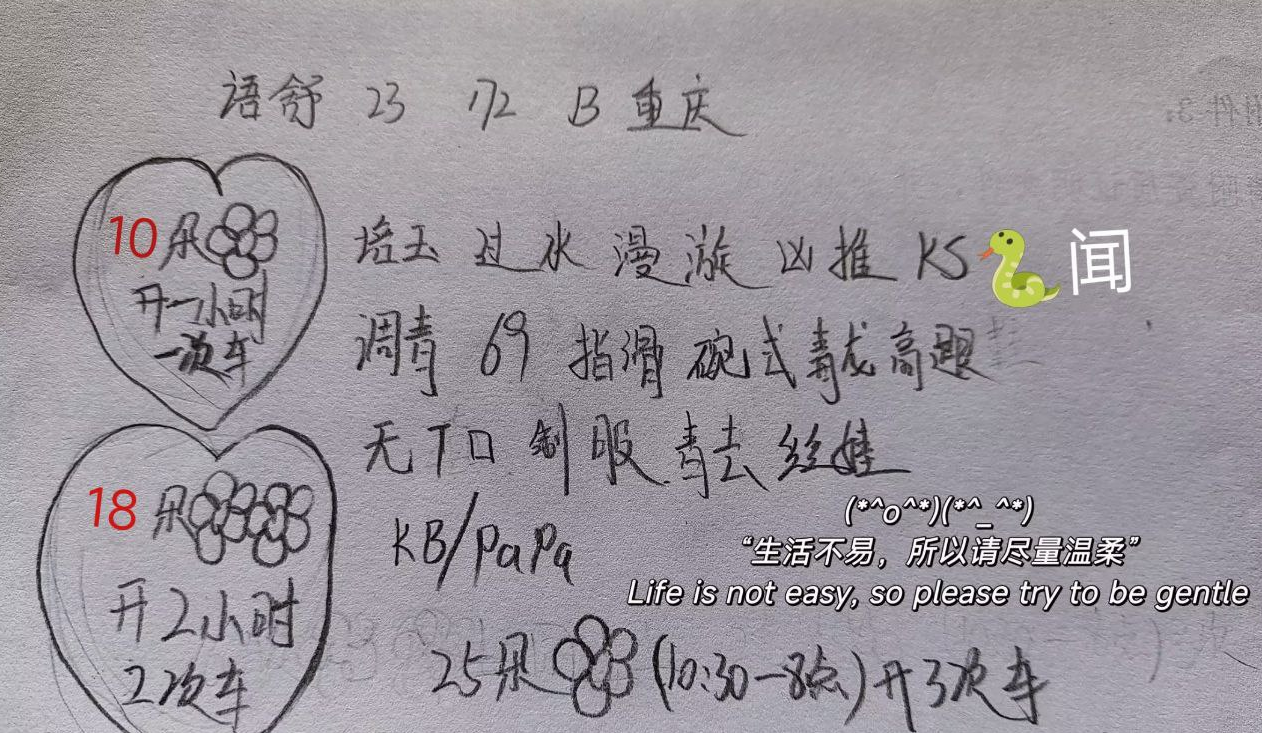 语舒 23 172 B 重庆
10朵
开一小时
一次车
培玉 过水 漫漩 凶推 KS 闻
调青 69 指滑 碗式 毒龙 高跟
无T口 制服 青去 丝娃
18朵
开2小时
2次车
KB/PaPa
(*^o^*)(*^_^*)
“生活不易，所以请尽量温柔”
Life is not easy, so please try to be gentle
25朵 (10:30-8点)开3次车